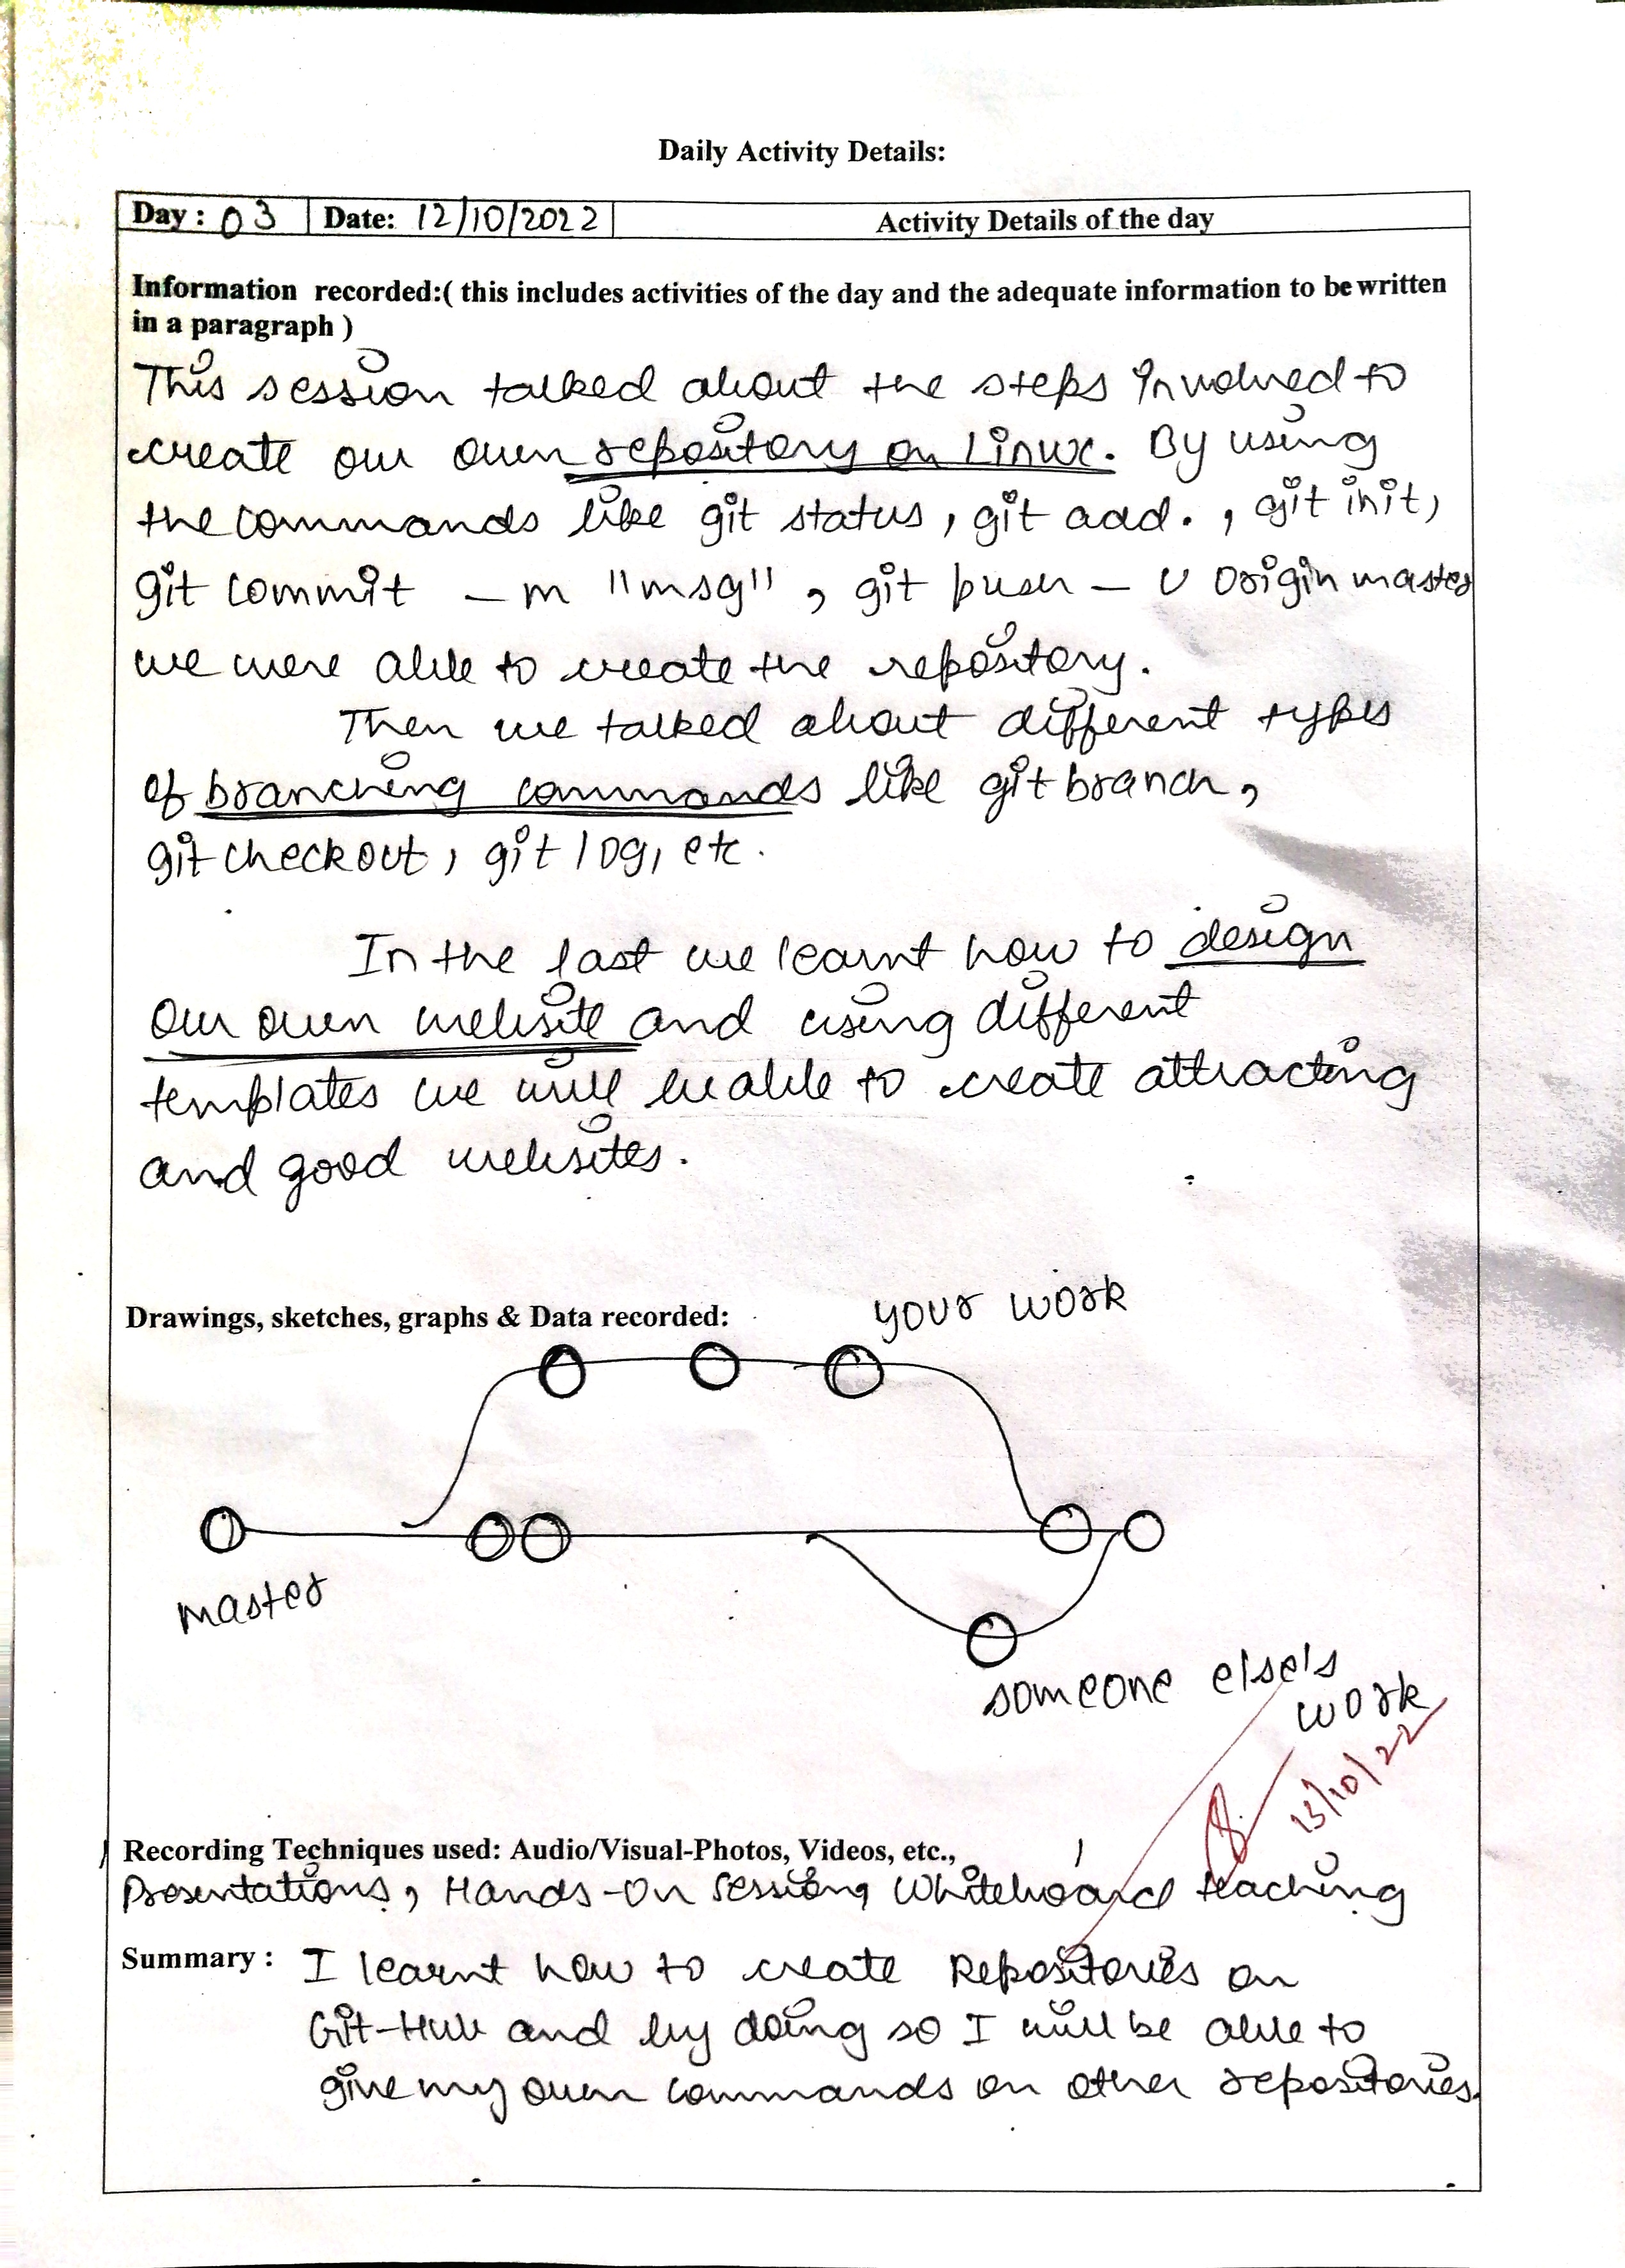 Daily Activity Details:
Day : 03 Date: 12/10/2022 Activity Details of the day
Information recorded:( this includes activities of the day and the adequate information to be written
in a paragraph )
This session talked about the steps involved to
create our own repository on Linux. By using
the commands like git status, git add . , git init,
git commit -m "msg", git push -u origin master
we were able to create the repository.
Then we talked about different types
of branching commands like git branch,
git checkout, git log, etc.
In the last we learnt how to design
our own website and using different
templates we will be able to create attracting
and good websites.
Drawings, sketches, graphs & Data recorded:
your work
master
someone else's
work
13/10/22
Recording Techniques used: Audio/Visual-Photos, Videos, etc.,
Presentations, Hands-On Session, Whiteboard teaching
Summary : I learnt how to create Repositories on
Git-Hub and by doing so I will be able to
give my own commands on other repositories.